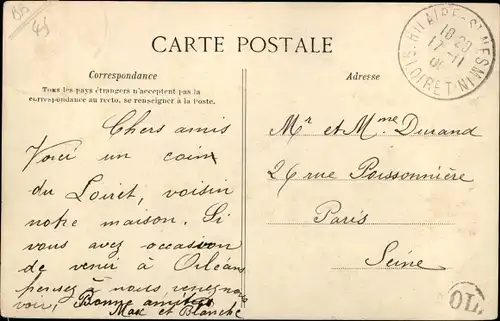 45
CARTE POSTALE
Correspondance
Tous les pays étrangers n'acceptent pas la
correspondance au recto, se renseigner à la Poste.
Adresse
ST HILAIRE-ST MESMIN
18 20
17-11
LOIRET
Chers amis
Voici un coin
du Loiret, voisin
notre maison. Si
vous avez occasion
de venir à Orléans
pensez à nous venez nous
voir, Bonne amitiés
Max et Blanche
Mr et Mme Durand
26 rue Poissonnière
Paris
Seine
OL